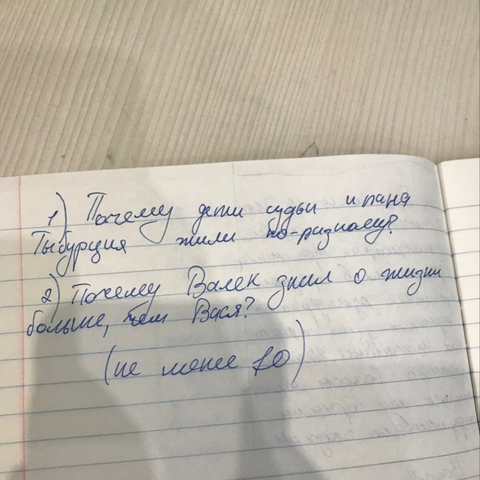 1) Почему дети судьи и пана
Тыбурция жили по-разному?
2) Почему Валек знал о жизни
больше, чем Вася?
(не менее 10)